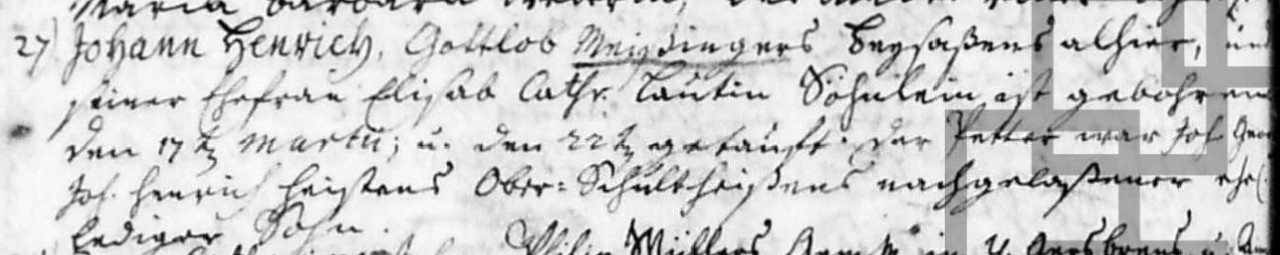 Maria Barbara
27) Johann Henrich, Gottlob Meißingers Beysaßens alhier, und
seiner Ehefrau Elisab Cathr. Lautin Söhnlein ist gebohren
den 17t Martii; u. den 22t getäuft. Der Petter war Joh
Joh. Henrich Heistens Ober-Schultheißens nachgelaßener ehel.
lediger Sohn.
Philip Müllers